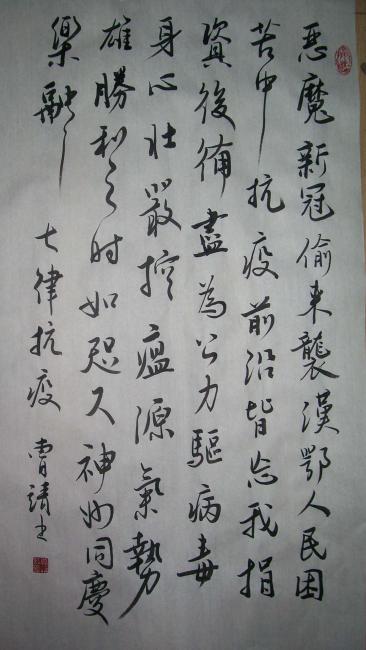 惡魔新冠偷來襲漢鄂人民困
苦中抗疫前沿皆忘我捐
資後備盡為公力驅病毒
身心壯嚴控瘟源氣勢
雄勝利之時如咫尺神州同慶
樂融〻
七律抗疫 曹靖書